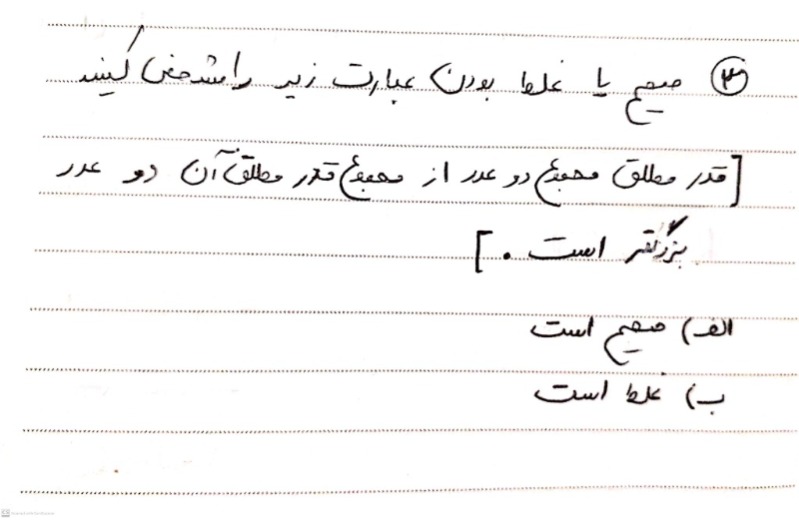 ۳ صحیح یا غلط بودن عبارت زیر را مشخص کنید
[قدر مطلق مجموع دو عدد از مجموع قدر مطلق آن دو عدد
بزرگتر است .]
الف) صحیح است
ب) غلط است